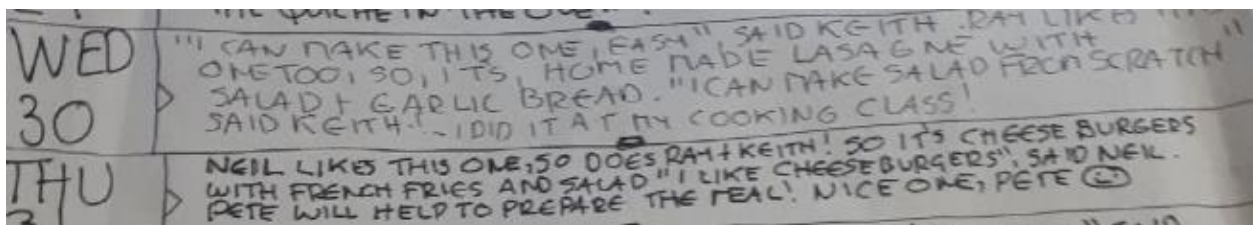 THE QUICHE IN THE OVEN".
WED "I CAN MAKE THIS ONE, EASY" SAID KEITH. RAY LIKES THIS
ONE TOO, SO, ITS, HOME MADE LASAGNE WITH
SALAD & GARLIC BREAD. "I CAN MAKE SALAD FROM SCRATCH"
30 SAID KEITH. - I DID IT AT MY COOKING CLASS!
THU NEIL LIKES THIS ONE, SO DOES RAY + KEITH! SO IT'S CHEESE BURGERS
WITH FRENCH FRIES AND SALAD "I LIKE CHEESEBURGERS", SAID NEIL.
PETE WILL HELP TO PREPARE THE MEAL! NICE ONE, PETE ☺